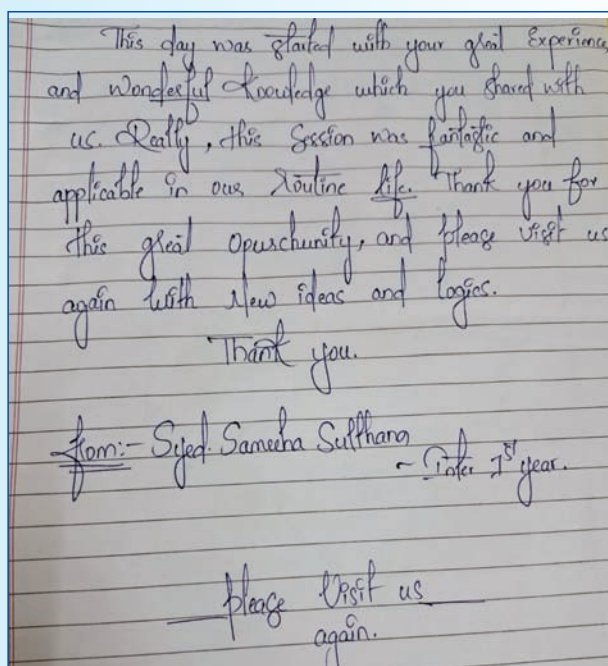 This day was started with your great Experience
and wonderful knowledge which you shared with
us. Really, this Session was fantastic and
applicable in our routine life. Thank you for
this great opurchunity, and please visit us
again with New ideas and logics.
Thank you.
from:- Syed. Sameeha Sulthana
- Inter 1st year.
please Visit us
again.